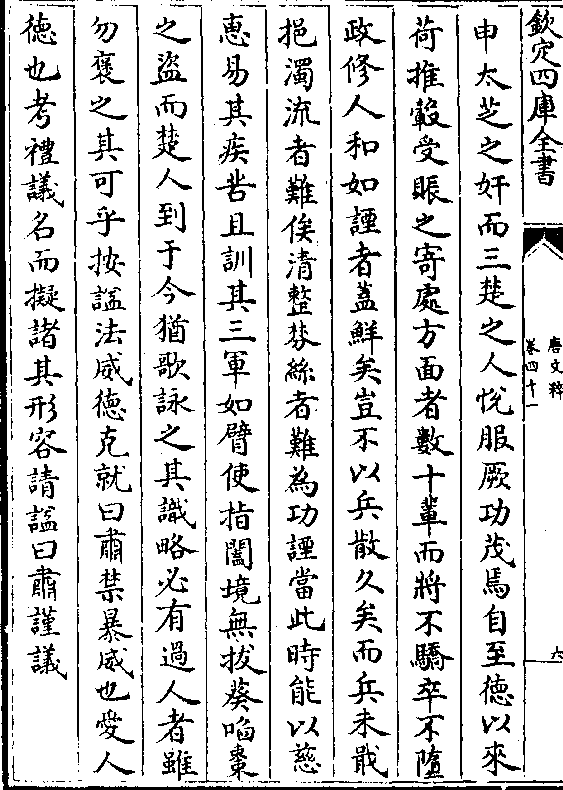 欽定四庫全書
唐文粹
卷四十一
六
申太芝之奸而三楚之人悅服厥功茂焉自至德以來
荷推轂受脤之寄處方面者數十輩而將不驕卒不墮
政修人和如諲者蓋鮮矣豈不以兵散久矣而兵未戢
挹濁流者難俟清整棼絲者難為功諲當此時能以慈
惠易其疾苦且訓其三軍如臂使指闔境無拔葵啗棗
之盜而楚人到于今猶歌詠之其識略必有過人者雖
勿褒之其可乎按諡法威德克就曰肅禁暴威也愛人
德也考禮議名而擬諸其形容請諡曰肅謹議